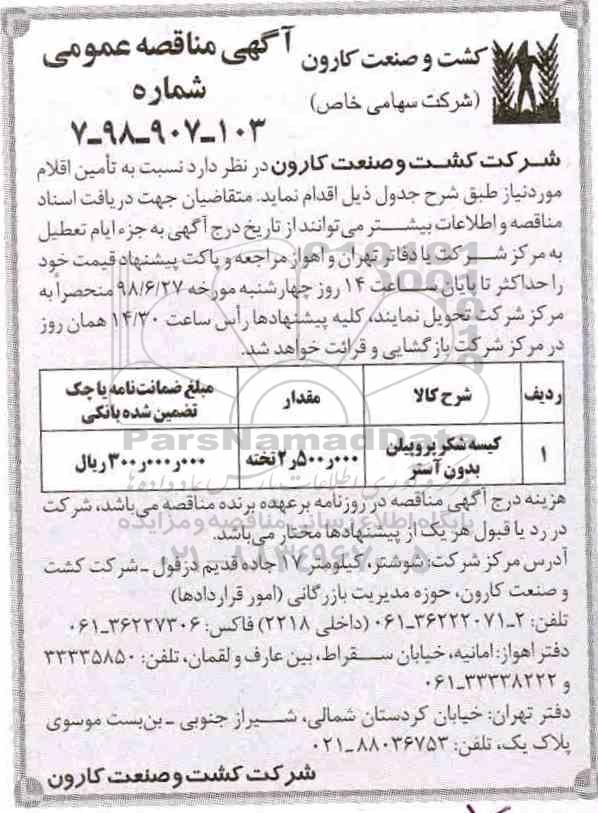 آگهی مناقصه عمومی
شماره
۷-۹۸-۹۰۷-۱۰۳
کشت و صنعت کارون
(شرکت سهامی خاص)
شرکت کشت و صنعت کارون در نظر دارد نسبت به تأمین اقلام
موردنیاز طبق شرح جدول ذیل اقدام نماید. متقاضیان جهت دریافت اسناد
مناقصه و اطلاعات بیشتر می‌توانند از تاریخ درج آگهی به جزء ایام تعطیل
به مرکز شرکت یا دفاتر تهران و اهواز مراجعه و پاکت پیشنهاد قیمت خود
را حداکثر تا پایان ساعت ۱۴ روز چهارشنبه مورخه ۹۸/۶/۲۷ منحصراً به
مرکز شرکت تحویل نمایند، کلیه پیشنهادها رأس ساعت ۱۴/۳۰ همان روز
در مرکز شرکت بازگشایی و قرائت خواهد شد.
ردیف شرح کالا مقدار مبلغ ضمانت‌نامه یا چک
تضمین شده بانکی
۱ کیسه شکر پروپیلن
بدون آستر ۲ر۵۰۰ر۰۰۰ تخته ۳۰۰ر۰۰۰ر۰۰۰ ریال
ParsNamadData
هزینه درج آگهی مناقصه در روزنامه برعهده برنده مناقصه می‌باشد، شرکت
در رد یا قبول هر یک از پیشنهادها مختار می‌باشد.
پایگاه اطلاع رسانی مناقصه و مزایده
۰۲۱-۸۸۳۴۹۶۷۰-۵
آدرس مرکز شرکت: شوشتر، کیلومتر ۱۷ جاده قدیم دزفول - شرکت کشت
و صنعت کارون، حوزه مدیریت بازرگانی (امور قراردادها)
تلفن: ۲-۳۶۲۲۲۰۷۱-۰۶۱ (داخلی ۲۲۱۸) فاکس: ۳۶۲۲۷۳۰۶-۰۶۱
دفتر اهواز: امانیه، خیابان سقراط، بین عارف و لقمان، تلفن: ۳۳۳۳۵۸۵۰
و ۳۳۳۳۸۲۲۲-۰۶۱
دفتر تهران: خیابان کردستان شمالی، شیراز جنوبی - بن‌بست موسوی
پلاک یک، تلفن: ۸۸۰۳۶۷۵۳-۰۲۱
شرکت کشت و صنعت کارون